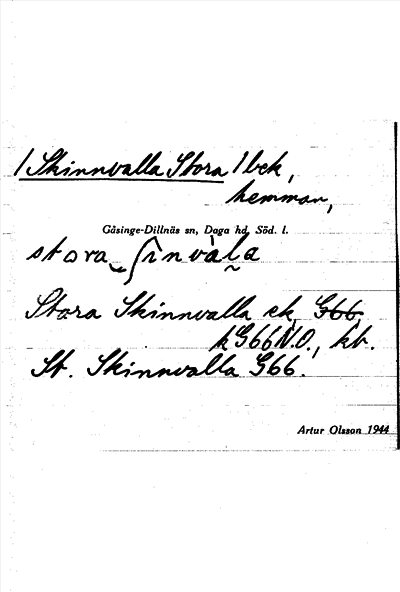 / Skinnvalla Stora / bek,
hemman,
Gåsinge-Dillnäs sn, Daga hd, Söd. l.
stora ʃìnvàla
Stora Skinnvalla ek, G66,
k G66 N.O., kb.
St. Skinnvalla G66.
Artur Olsson 1944